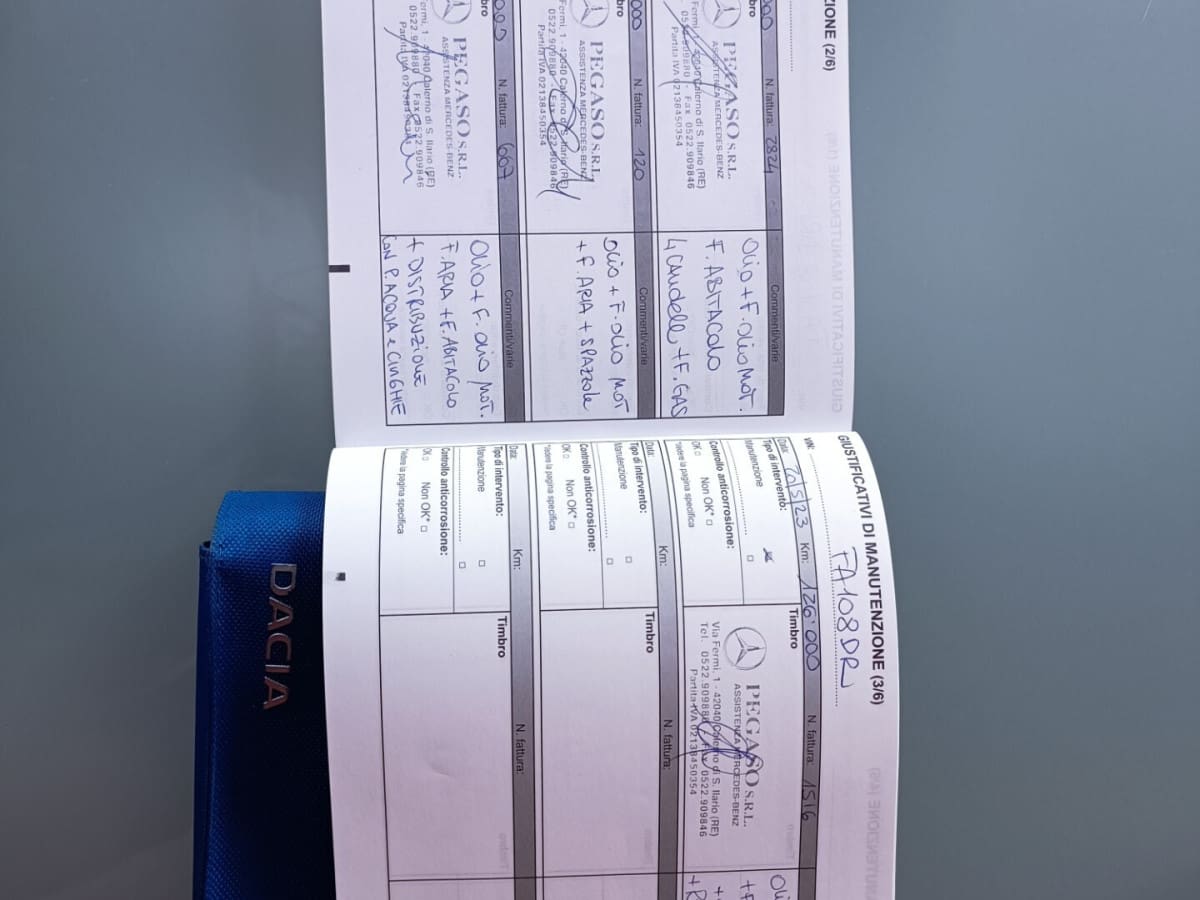 ZIONE (2/6)
000 N. fattura: 2824 Commenti/varie
PEGASO S.R.L.
ASSISTENZA MERCEDES-BENZ
42040 Calerno di S. Ilario (RE)
Fax 0522.909846
Partita IVA 02138450354
OLIO + F. OLIO MOT.
F. ABITACOLO
4 CANDELE + F. GAS
000 N. fattura: 120 Commenti/varie
PEGASO S.R.L.
ASSISTENZA MERCEDES-BENZ
Fermi, 1 - 42040 Calerno di S. Ilario (RE)
0522.909880 - Fax 0522.909846
Partita IVA 02138450354
OLIO + F. OLIO MOT
+ F. ARIA + SPAZZOLE
000 N. fattura: 607 Commenti/varie
PEGASO S.R.L.
ASSISTENZA MERCEDES-BENZ
Fermi, 1 - 42040 Calerno di S. Ilario (RE)
0522.909880 - Fax 0522.909846
Partita IVA
OLIO + F. OLIO MOT.
F. ARIA + F. ABITACOLO
+ DISTRIBUZIONE
CON P. ACQUA e CINGHIE
GIUSTIFICATIVI DI MANUTENZIONE (3/6)
VIN: FA108DR
Data: 20/5/23 Km: 126'000 N. fattura: 1516
Tipo di intervento:
Manutenzione
Controllo anticorrosione:
OK Non OK*
*vedere la pagina specifica
Timbro
PEGASO S.R.L.
ASSISTENZA MERCEDES-BENZ
Via Fermi, 1 - 42040 Calerno di S. Ilario (RE)
Tel. 0522.909880 - Fax 0522.909846
Partita IVA 02138450354
Data: Km: N. fattura:
Tipo di intervento:
Manutenzione
Controllo anticorrosione:
OK Non OK*
*vedere la pagina specifica
Timbro
Data: Km: N. fattura:
Tipo di intervento:
Manutenzione
Controllo anticorrosione:
OK Non OK*
*vedere la pagina specifica
Timbro
DACIA